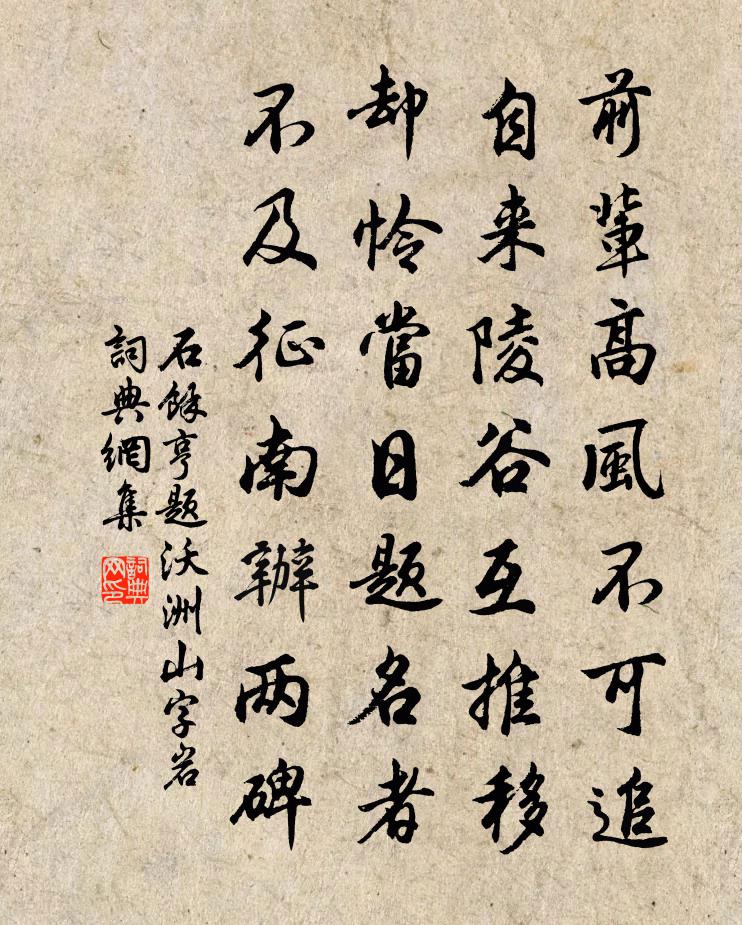 前輩高風不可追
自来陵谷互推移
却怜當日题名者
不及征南辦两碑
石餘亨题沃洲山字岩
詞典網集
詞典网印